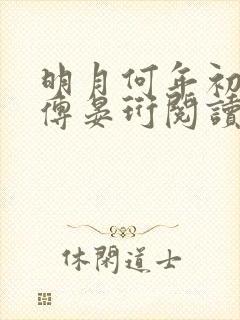 明月何年初
傅晏珩閱讀
休閑道士